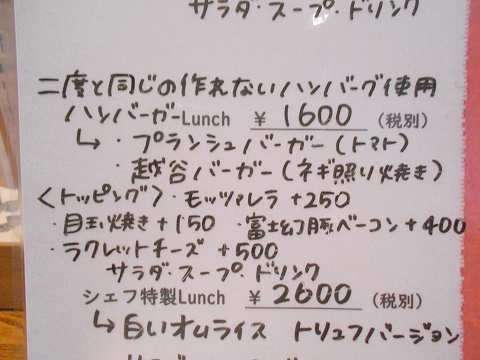 サラダ・スープ・ドリンク
二度と同じの作れないハンバーグ使用
ハンバーガーLunch ¥ 1600 (税別)
↳ ・プランシュバーガー(トマト)
・越谷バーガー(ネギ照り焼き)
〈トッピング〉・モッツァレラ +250
・目玉焼き +150 ・富士幻豚ベーコン +400
・ラクレットチーズ +500
サラダ・スープ・ドリンク
シェフ特製Lunch ¥ 2600 (税別)
↳ 白いオムライス トリュフバージョン